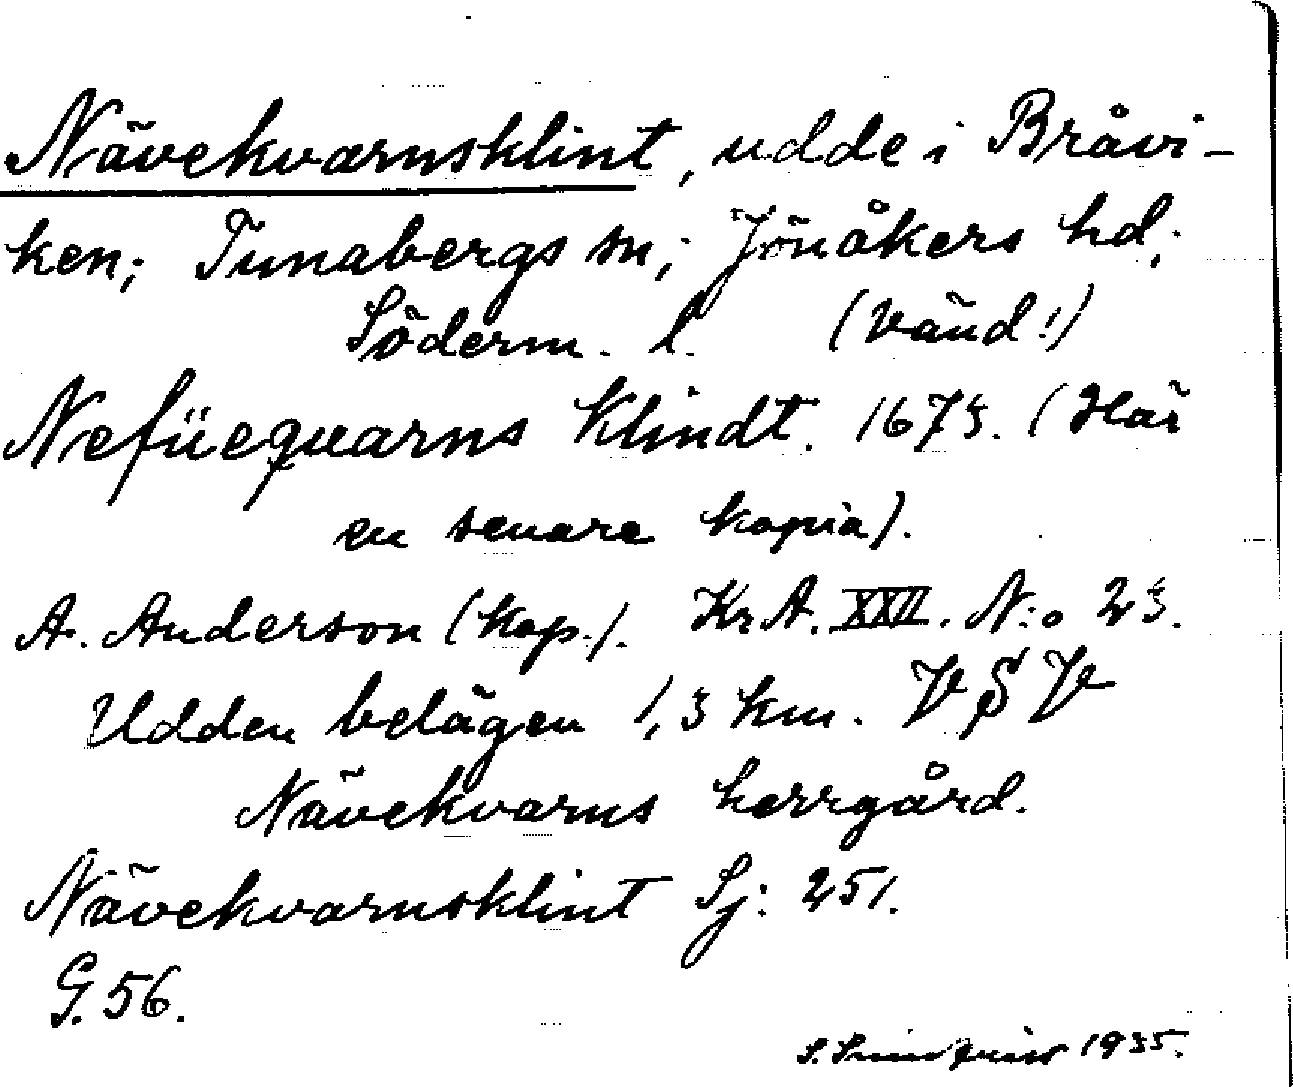 Nävekvarnsklint, udde i Bråvi-
ken; Tunabergs sn; Jönåkers hd;
Söderm. l. (Vänd!)
Nefüequarns Klindt. 1673. (Här
en senare kopia).
A. Anderson (Kop.). Kr A. XXII. N:o 23.
Udden belägen 1,3 km. V S V
Nävekvarns herrgård.
Nävekvarnsklint Sj: 251.
G. 56.
S. 1935.